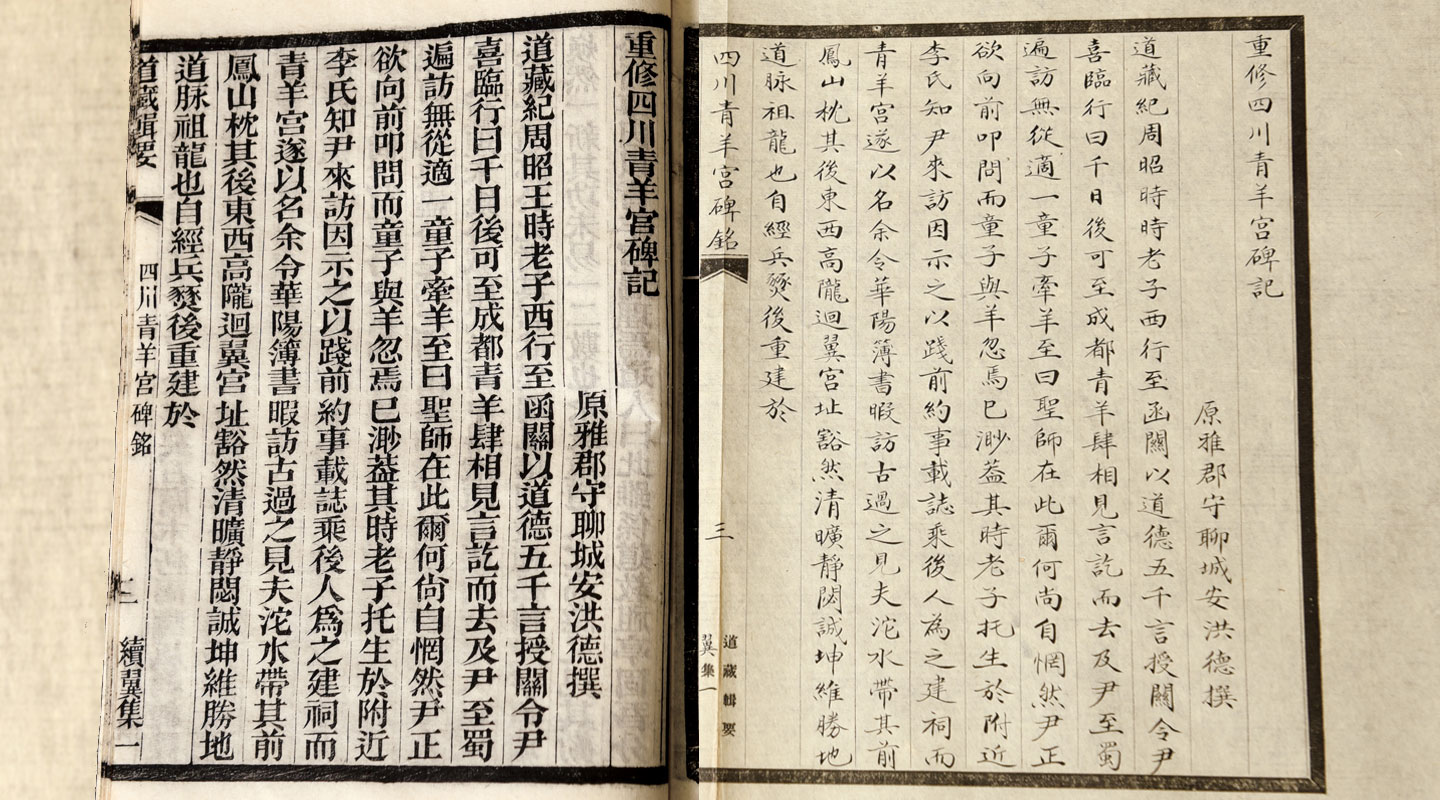 重修四川青羊宮碑記
原雅郡守聊城安洪德撰
道藏紀周昭時時老子西行至函關以道德五千言授關令尹
喜臨行曰千日後可至成都青羊肆相見言訖而去及尹至蜀
遍訪無從適一童子牽羊至曰聖師在此爾何尚自惘然尹正
欲向前叩問而童子與羊忽焉巳渺葢其時老子托生於附近
李氏知尹來訪因示之以踐前約事載誌乘後人為之建祠而
青羊宮遂以名余令華陽簿書暇訪古過之見夫沱水帶其前
鳳山枕其後東西高隴迴翼宮址豁然清曠靜閟誠坤維勝地
道脉祖龍也自經兵燹後重建於
四川青羊宮碑銘
三
道藏輯要
翼集一
重修四川青羊宮碑記
原雅郡守聊城安洪德撰
道藏紀周昭王時老子西行至函關以道德五千言授關令尹
喜臨行曰千日後可至成都青羊肆相見言訖而去及尹至蜀
遍訪無從適一童子牽羊至曰聖師在此爾何尙自惘然尹正
欲向前叩問而童子與羊忽焉巳渺葢其時老子托生於附近
李氏知尹來訪因示之以踐前約事載誌乘後人爲之建祠而
青羊宮遂以名余令華陽簿書暇訪古過之見夫沱水帶其前
鳳山枕其後東西高隴迴翼宮址豁然清曠靜閟誠坤維勝地
道脉祖龍也自經兵燹後重建於
道藏輯要
四川青羊宮碑銘
二
續翼集一